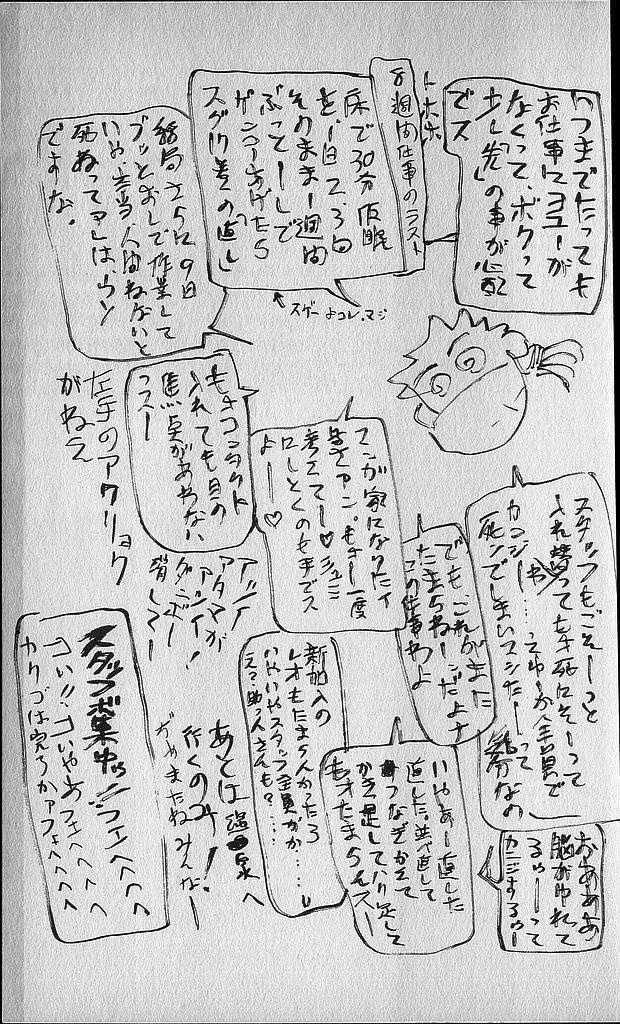 いつまでたっても
お仕事にヨユーが
なくって、ボクって
少し「先」の事が心配
でス
トホホ
8週間仕事のラスト
床で30分仮眠
を1日2、3回
そのまま1週間
ぶっとーしで
ゲンコーあげたら
スグ「1巻の直し」
スゲーよコレ、マジ
結局さらに9日
ブッとおしで作業して
いや、本当人間ねないと
死ぬってアレは、ウソ
ですな。
もォコンタクト
入れても目の
焦点があわない
っスー
左手のアクリョク
がねえ
マンガ家になりたィ
皆さァン。もォ一度
考えてー♡
ロしとくのも手でス
よー♡
アッアッ
アタマが
スタッフもごそーっと
入れ替ってもォ死にそーって
カンジー
死ンでしまいスンだーって
気分なの
でも、これがまた
たまらねーンだよナ
この仕事わよ
おあああ
脳がゆれて
るゥーって
カンジするゥー
いやあー直した
直した。並べ直して
つなぎかえて
かき足してハリ足して
もォたまらんスー
新加入の
レオもたまらんかったろ
いやいやスタッフ全員がか……し
え?助っ人さんも?……
あとは温泉へ
行くのみ!
がめまたね みんなー
スタッフ募集中ッ フェヘヘヘ
コい!!コいやあフェヘヘヘヘ
カクゴは完了かァフェヘヘヘヘ